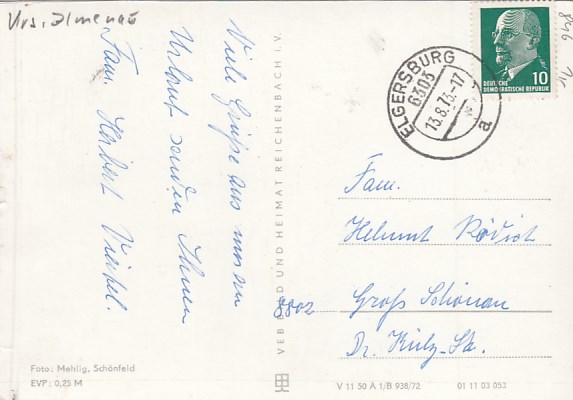 Krs. Ilmenau
Viele Grüße aus unserem
Urlaub senden Ihnen
Fam. Herbert
VEB BILD UND HEIMAT REICHENBACH i. V.
ELGERSBURG
6303
13.8.73.-17
a
DEUTSCHE
DEMOKRATISCHE REPUBLIK
10
Fam.
Helmut
8802 Groß Schönau
Dr. Külz-Str.
Foto: Mehlig, Schönfeld
EVP: 0,25 M
V 11 50 A 1/B 938/72
01 11 03 053